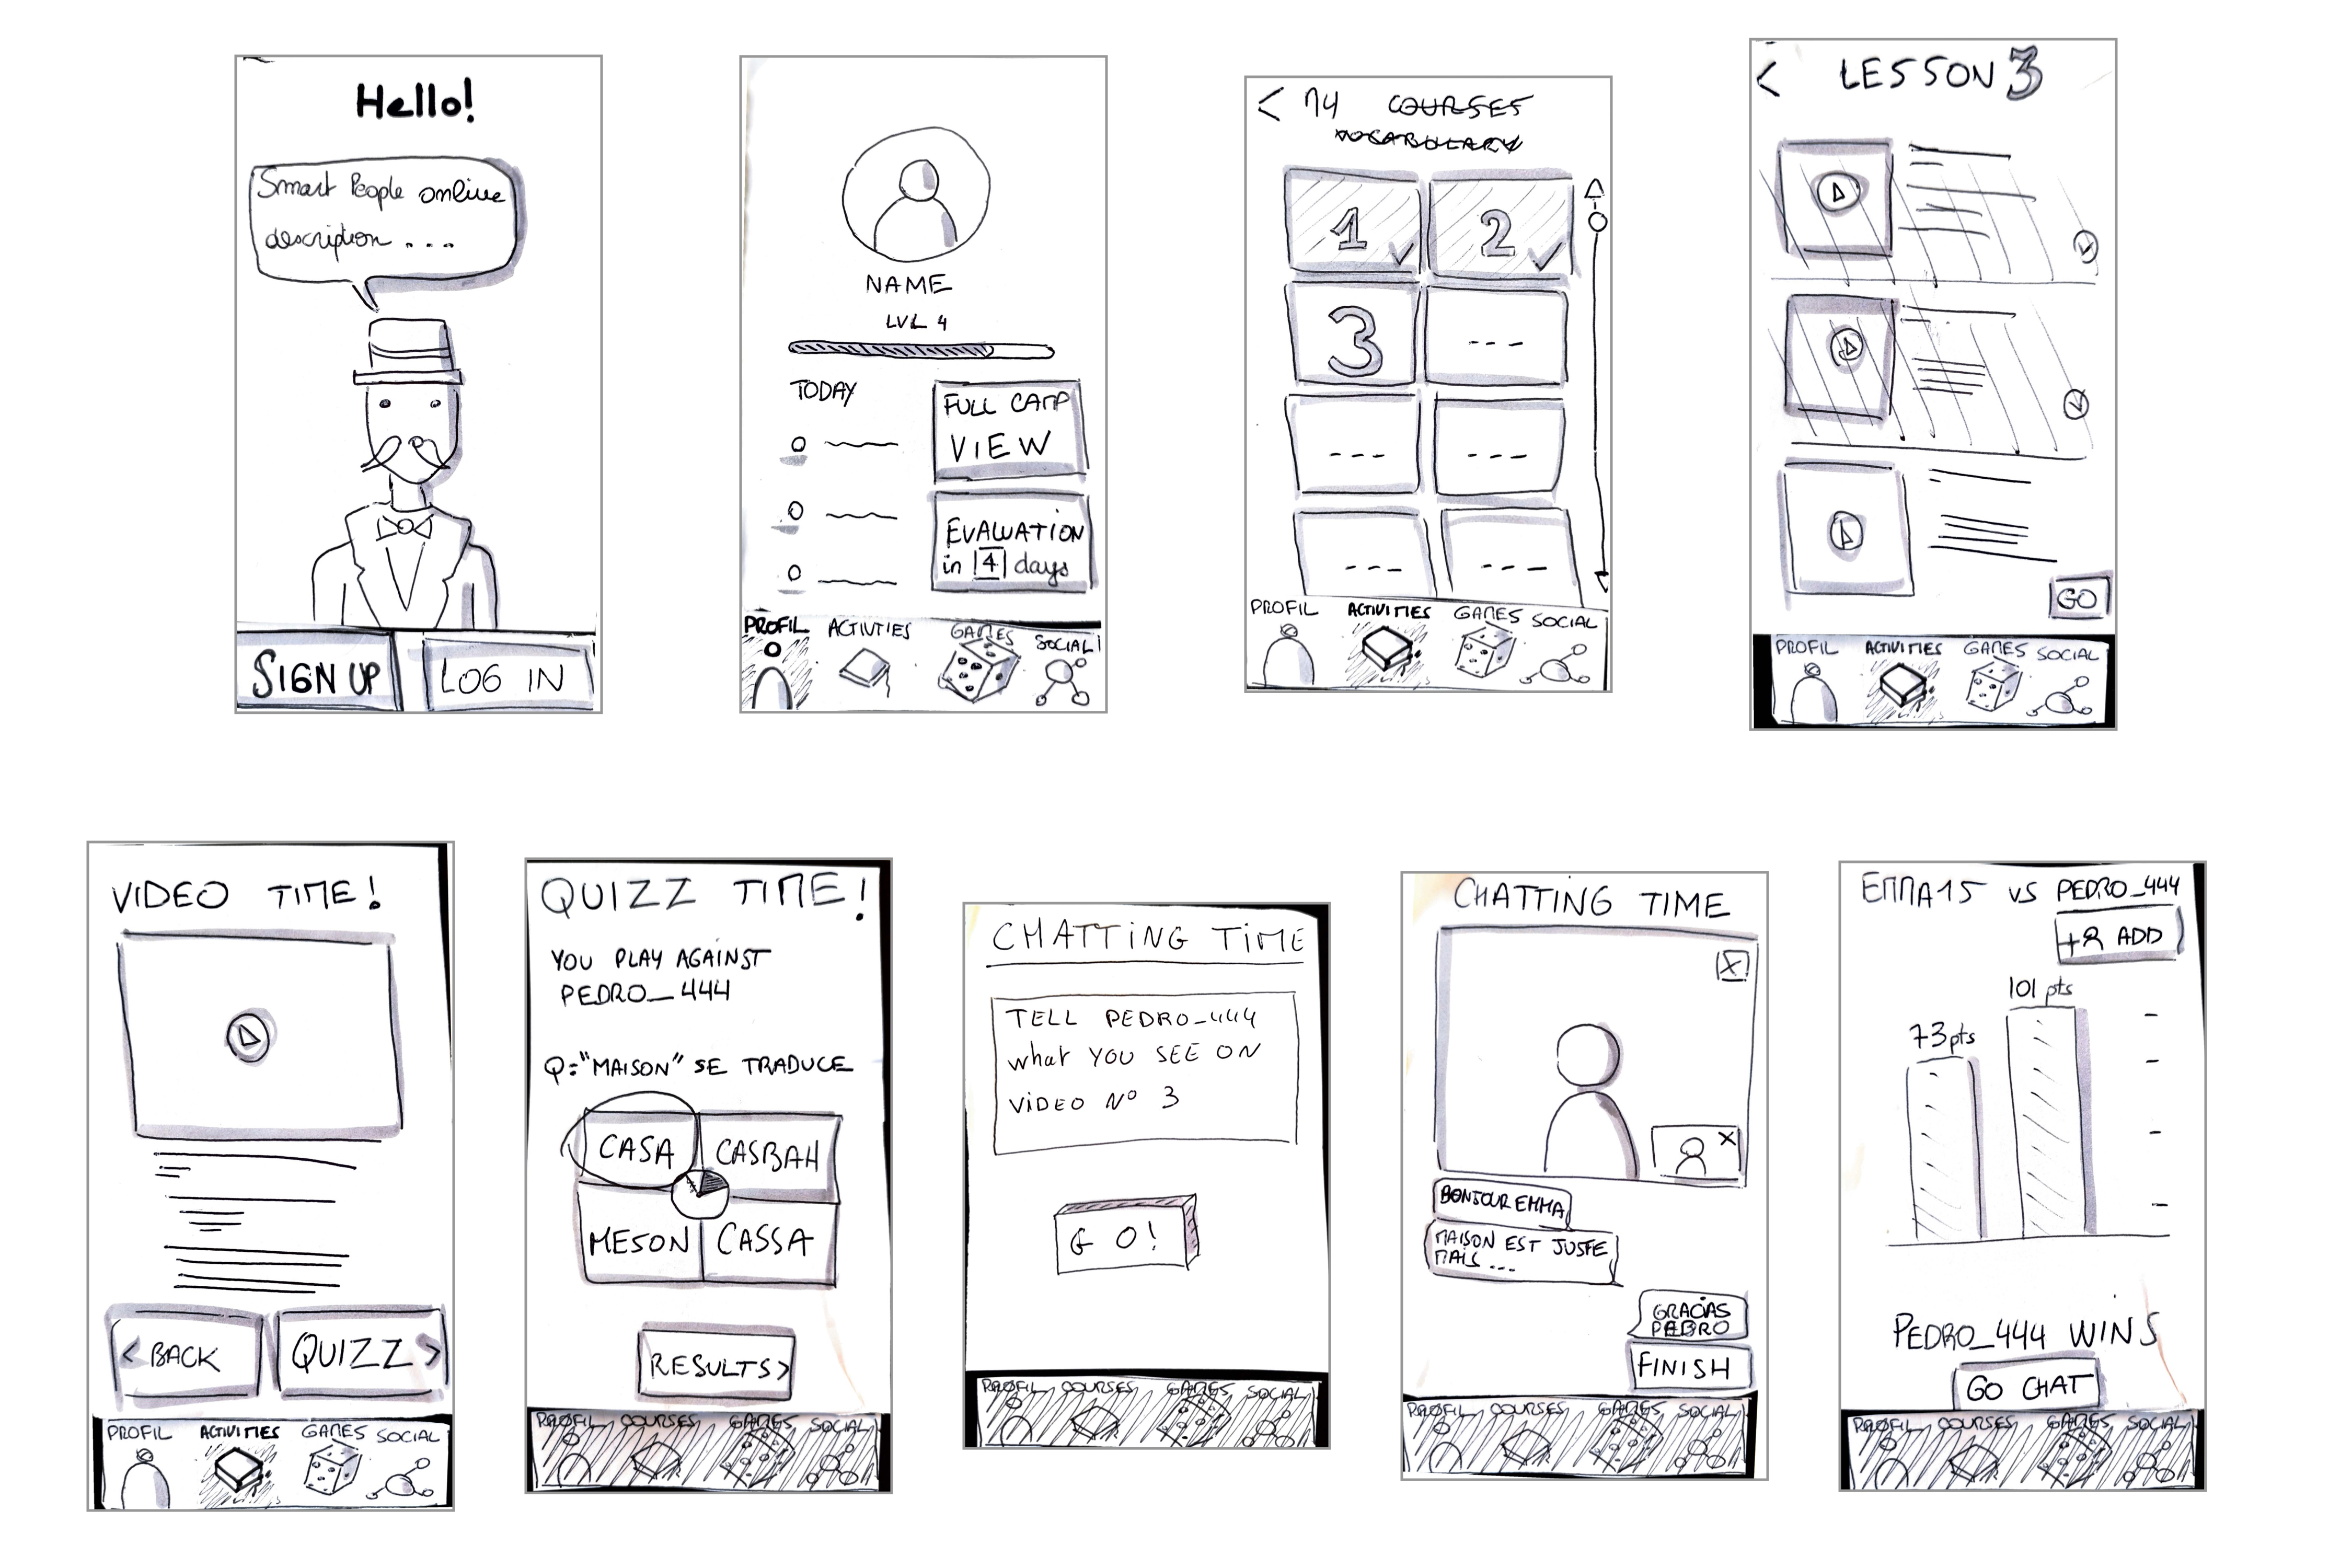 Hello!
Smart People online
description ...
SIGN UP
LOG IN
NAME
LVL 4
TODAY
FULL CAMP
VIEW
EVALUATION
in 4 days
PROFIL ACTIVITIES GAMES SOCIAL
< 14 COURSES
VOCABULARY
1 2
3 ---
--- ---
--- ---
PROFIL ACTIVITIES GAMES SOCIAL
< LESSON 3
GO
PROFIL ACTIVITIES GAMES SOCIAL
VIDEO TIME!
< BACK
QUIZZ >
PROFIL ACTIVITIES GAMES SOCIAL
QUIZZ TIME!
YOU PLAY AGAINST
PEDRO_444
Q="MAISON" SE TRADUCE
CASA CASBAH
MESON CASSA
RESULTS>
PROFIL COURSES GAMES SOCIAL
CHATTING TIME
TELL PEDRO_444
what YOU SEE ON
VIDEO Nº 3
GO!
PROFIL COURSES GAMES SOCIAL
CHATTING TIME
X
X
BONJOUR EMMA
MAISON EST JUSTE
MAIS ...
GRACIAS
PEDRO
FINISH
PROFIL COURSES GAMES SOCIAL
EMMA15 VS PEDRO_444
+ ADD
101 pts
73pts
PEDRO_444 WINS
GO CHAT
PROFIL COURSES GAMES SOCIAL